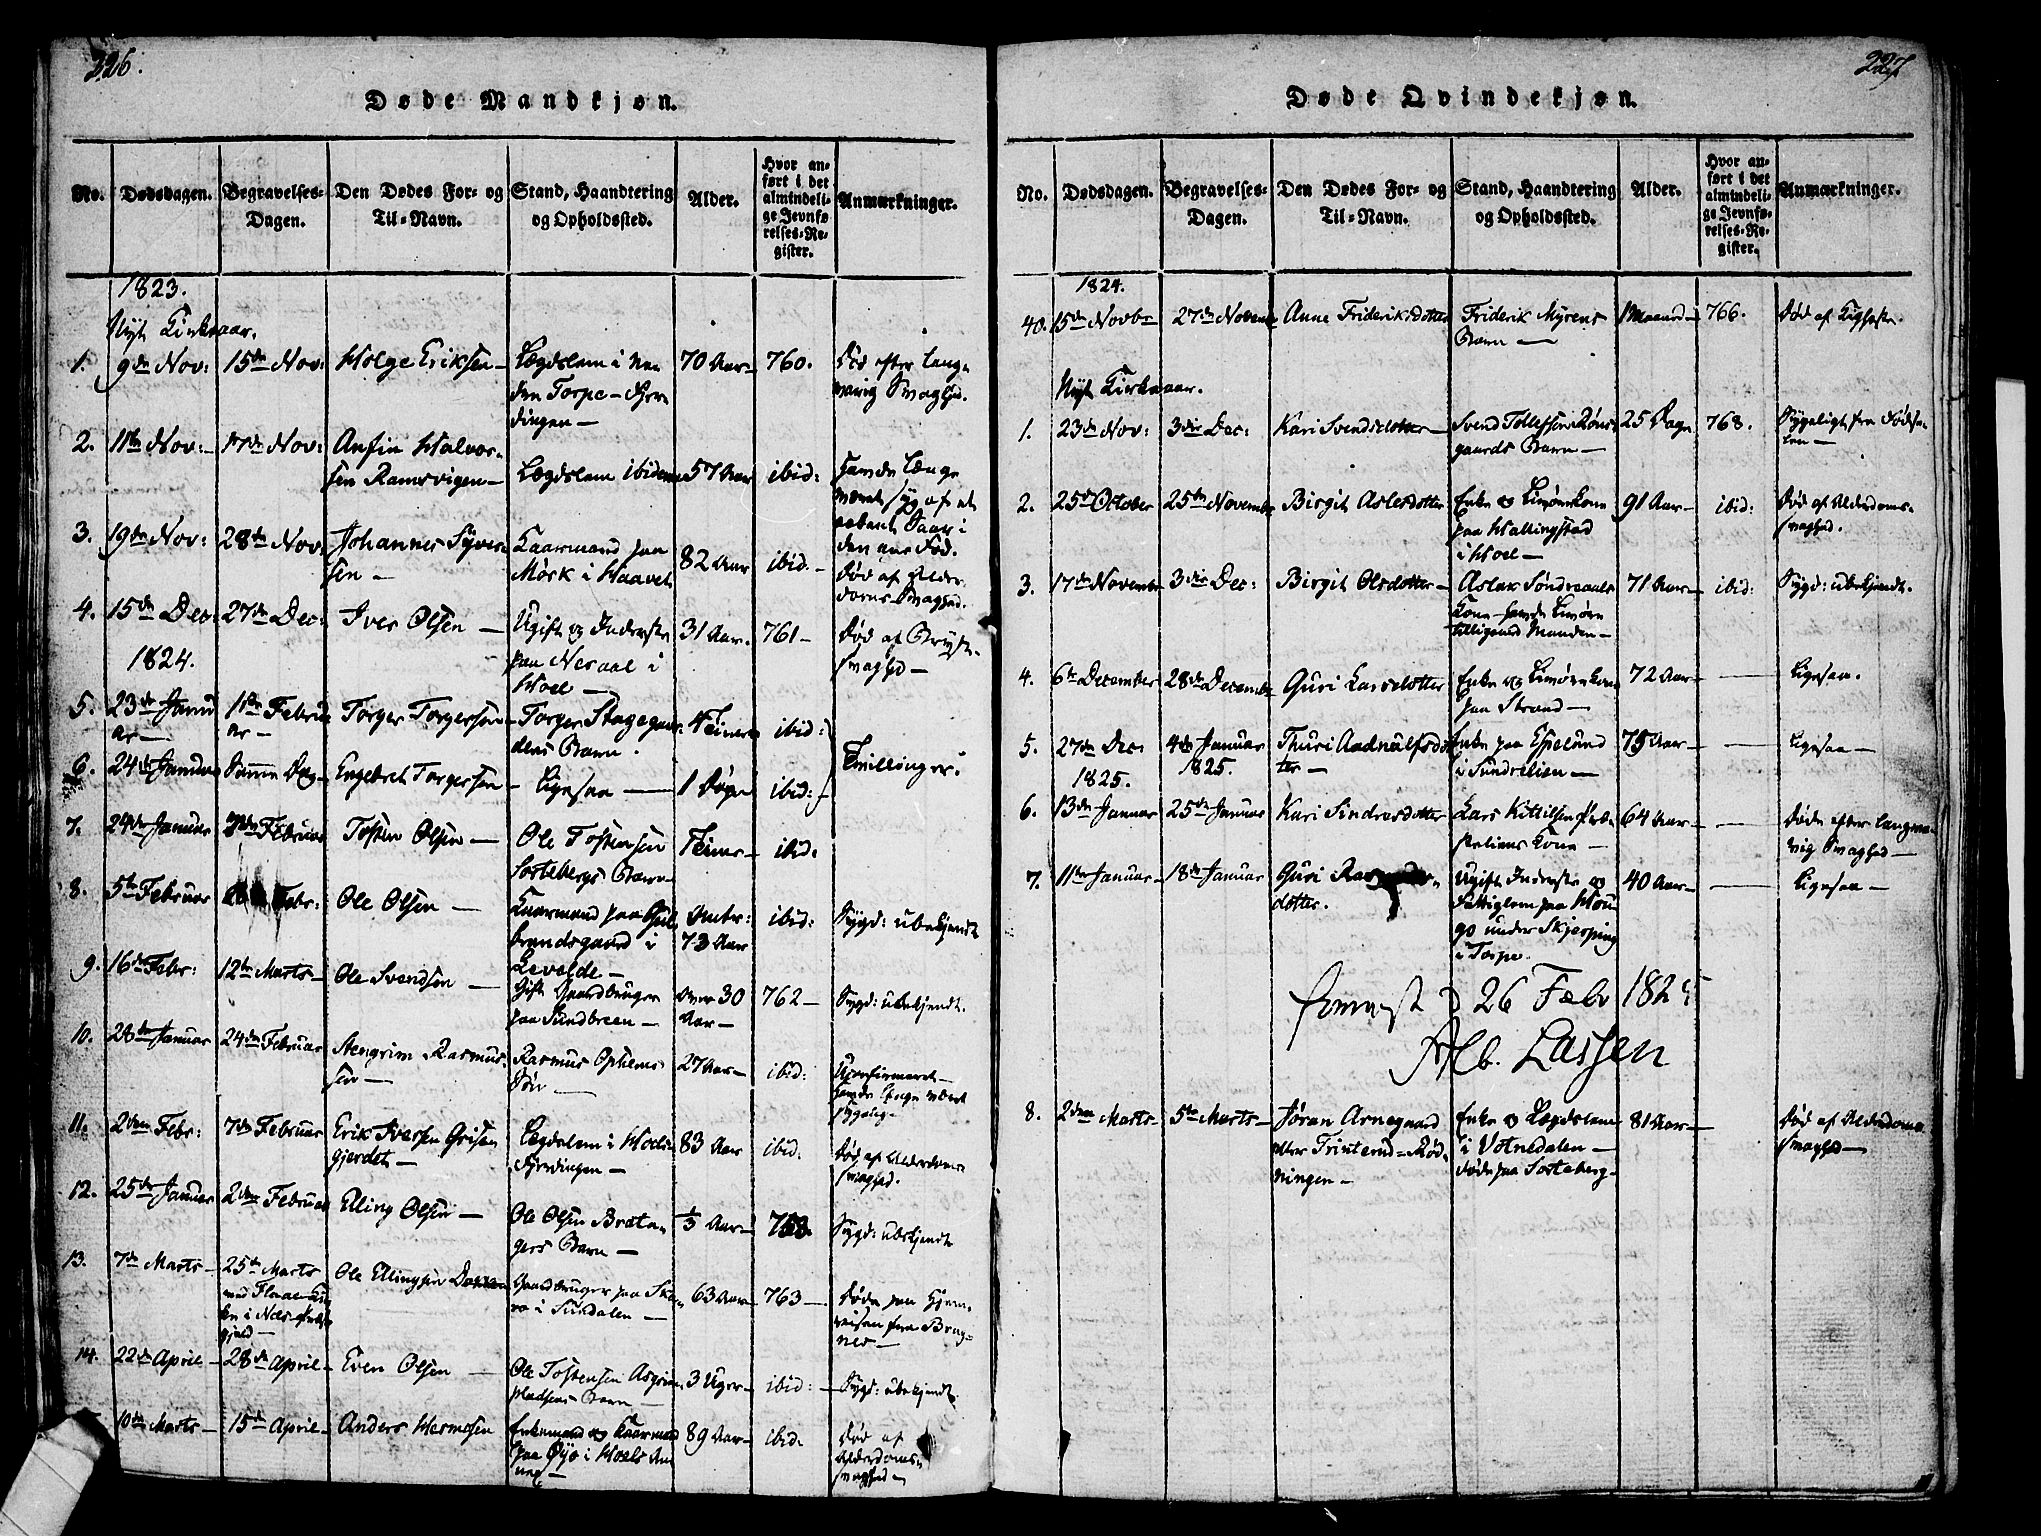 226.
Døde Mandkjøn.
No. Dødsdagen. Begravelses-Dagen. Den Dødes For- og Til-Navn. Stand, Haandtering og Opholdssted. Alder. Hvor anført i det almindelige Jevnførelses-Register. Anmærkninger.
1823.
Nyt Kirkeaar.
1. 9de Nov: 15de Nov: Holge Eriksen – Lægdslem i
den Torpe – Fjer-
dingen – 70 Aar – 760. Død efter lang-
varig Svaghed.
2. 11te Nov: – 17de Nov: Anfin Halvor-
sen Ramsvigen – Lægdslem ibidem 57 Aar ibid: havde længe
været syg af et
aabent Saar i
den ene Fod.
3. 19de Nov: 28de Nov: Johannes Syver-
sen – Kaarmand paa
Mörk i Haavet 82 Aar ibid. – Død af Alder-
doms-Svaghed.
4. 15de Dec: 27de Dec: Iver Olsen – Ugift og Inderste
paa Nesaal i
Hoel – 31 Aar. 761 – Død af Bryst-
svaghed –
1824.
5. 23de Janu-
ar – 1ste Febru-
ar – Torger Torgersen – Torger Stagegaar-
dens Barn. 4 Timer ibid:
6. 24de Januar Samme Dag – Engebret Torgersen – Ligesaa – 1 Døgn ibid: Tvillinger.
7. 24de Januar Februar Tosten Olsen – Ole Tostensen
Sortebergs Barn – Timer – ibid:
8. 5te Februar Febr: Ole Olsen – Kaarmand paa Gul-
brandsgaard i
Levelde – Mdr:
73 Aar ibid: Sygd: ubekjendt
9. 16de Febr: 12te Marts – Ole Svendsen – Gift Gaardbruger
paa Sundbreen – Over 30
Aar – 762 – Sygd: ubekjendt.
10. 28de Januar 24de Februar Stengrim Rasmus-
sen – Rasmus Ophems
Søn – 27 Aar – ibid: Uconfirmeret –
havde længe været
sygelig –
11. 2den Febr: 7de Februar Erik Iversen Grisen-
gjerdet – Lægdslem i Hoels-
Fjerdingen – 83 Aar ibid. Død af Alderdoms-
svaghed.
12. 25de Januar 2den Februar Elling Olsen – Ole Olsen Brata-
gers Barn – ⅓ Aar – 763. Sygd: ubekjendt
13. 7de Marts – 25de Marts
ved Flaae-Kir-
ken i Næs-Præste-
gjeld – Ole Ellingsen Gaardbruger paa
i Sundalen – 63 Aar – 763 – Døde paa Hjem-
reisen fra Brag-
nes –
14. 22de April – 28de April – Even Olsen – Ole Tostensen
Barn – 3 Uger – ibid: – Sygd: ubekjendt.
10de Marts – 15de April – Anders Hermosen Enkemand og Kaarmand
paa Øye i Hoels An-
nex – 89 Aar – ibid. Død af
Alderdoms-
svaghed –
227
Døde Qvindekjøn.
No. Dødsdagen. Begravelses-Dagen. Den Dødes For- og Til-Navn. Stand, Haandtering og Opholdssted. Alder. Hvor anført i det almindelige Jevnførelses-Register. Anmærkninger.
1824.
40. 15de Novbr 27de Novemb. Anne Frideriksdotter Friderik Myrens
Barn – 1 Maaned – 766. Død af Kighoste.
Nyt Kirkeaar.
1. 23de Nov: 3die Dec: Kari Svendsdotter – Svend Tollefsen
gaards Barn – 25 Dage 768. Sygeligt fra Fødse-
len –
2. 25de October 25de November Birgit Aslesdotter Enke og Limønskone
paa Hallingstad
i Hoel – 91 Aar – ibid: Død af Alderdoms-
svaghed.
3. 17de November 3die Dec: Birgit Olsdotter – Aslak Søndreaals
Kone – 71 Aar – ibid: Sygd: ubekjendt.
4. 6te December 28de December Guri Larsdotter Enke og Limønskone
paa Strand – 72 Aar – – Ligesaa.
5. 27de Dec: 4de Januar
1825. Thuri Aadnulfsdot-
ter – Enke paa Espelund
i Sundrelien – 75 Aar – – Ligesaa –
1825.
6. 13de Januar 25de Januar Kari Sindresdotter Lars Kittilsen
Kone – 64 Aar – – Døde efter langva-
rig Svaghed –
7. 11te Januar – 18de Januar Guri
dotter. Ugift Inderste og
Fattiglem paa
under Skjerping
i Torpe. 40 Aar – – Ligesaa –
26 Febr 1825
Alb. Lassen
8. 2den Marts – 5te Marts – Jøran Arnegaard
eller Trinterud-Rød-
ningen – Enke og Lægdslem
i Votnedalen –
døde paa Sorteberg – 81 Aar – Død af Alderdoms-
svaghed –